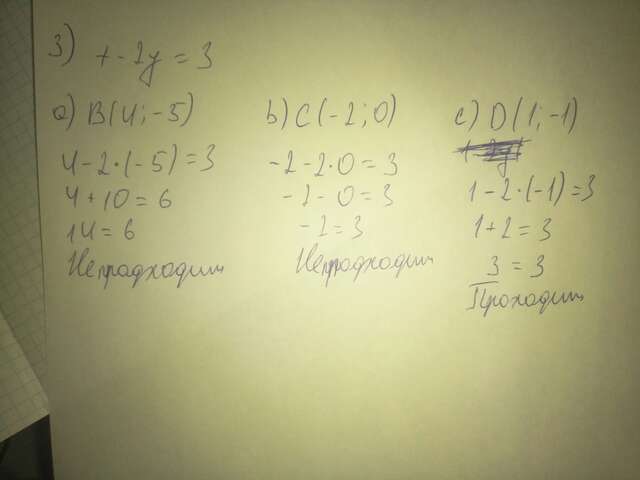 3) x-2y=3
a) B(4;-5)
4-2·(-5)=3
4+10=6
14=6
Не подходит
b) C(-2;0)
-2-2·0=3
-2-0=3
-2=3
Не подходит
c) D(1;-1)
1-2·(-1)=3
1+2=3
3=3
Проходит